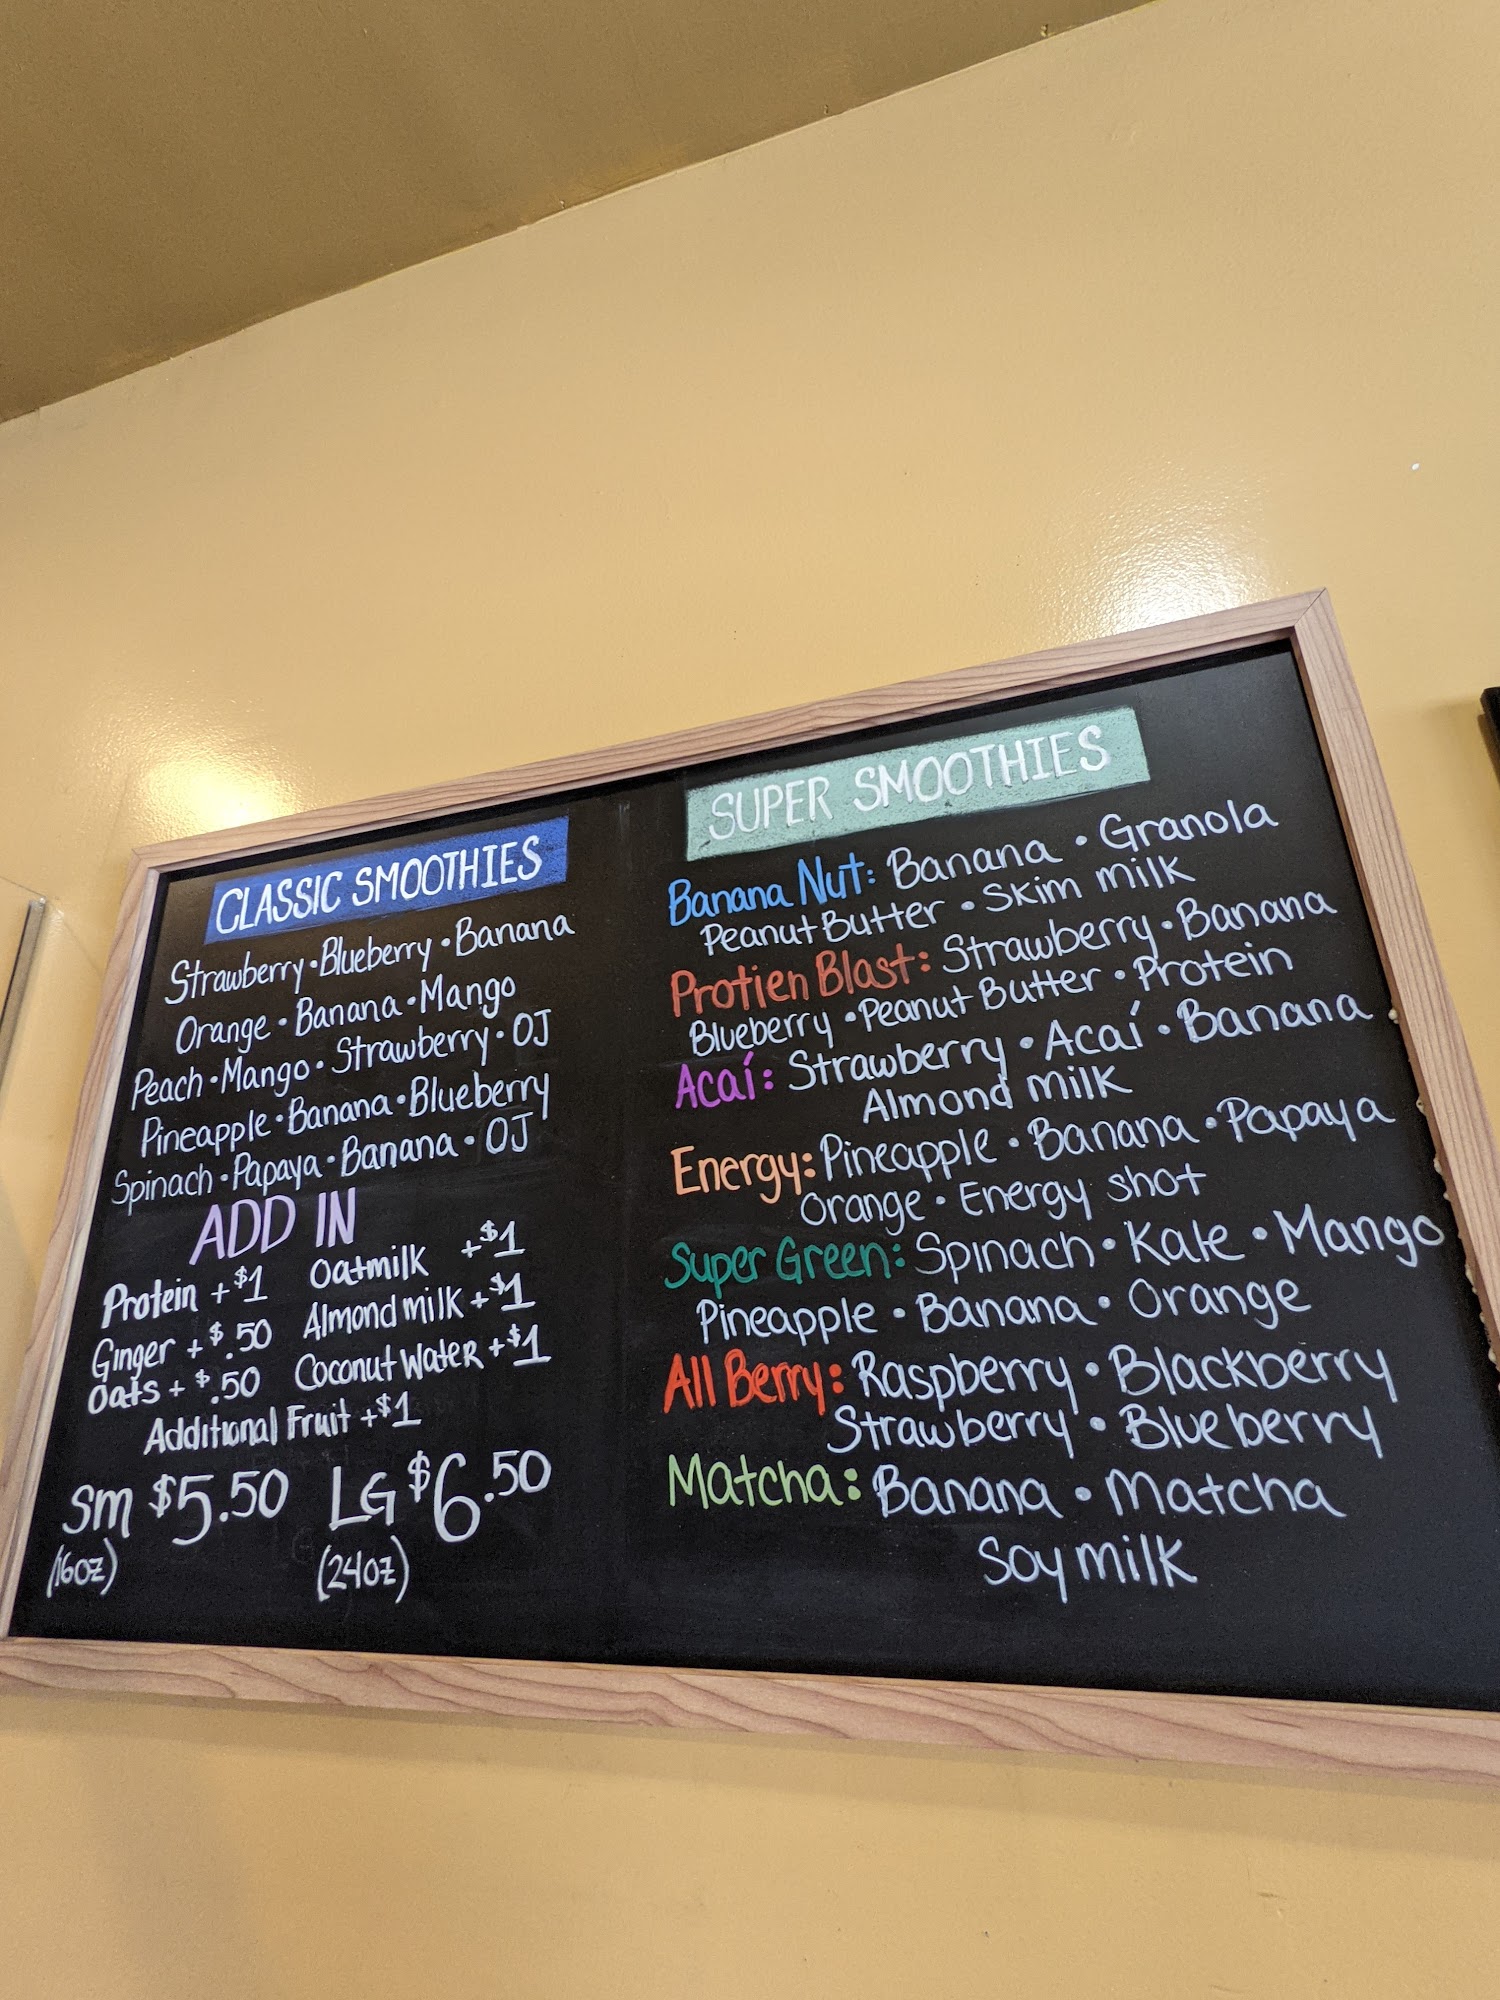 CLASSIC SMOOTHIES
Strawberry • Blueberry • Banana
Orange • Banana • Mango
Peach • Mango • Strawberry • OJ
Pineapple • Banana • Blueberry
Spinach • Papaya • Banana • OJ
ADD IN
Protein +$1
Ginger +$.50
Oats +$.50
Oatmilk +$1
Almond milk +$1
Coconut Water +$1
Additional Fruit +$1
Sm $5.50 LG $6.50
(16oz) (24oz)
SUPER SMOOTHIES
Banana Nut: Banana • Granola
Peanut Butter • Skim milk
Protien Blast: Strawberry • Banana
Blueberry • Peanut Butter • Protein
Acaí: Strawberry • Acaí • Banana
Almond milk
Energy: Pineapple • Banana • Papaya
Orange • Energy shot
Super Green: Spinach • Kale • Mango
Pineapple • Banana • Orange
All Berry: Raspberry • Blackberry
Strawberry • Blueberry
Matcha: Banana • Matcha
Soy milk